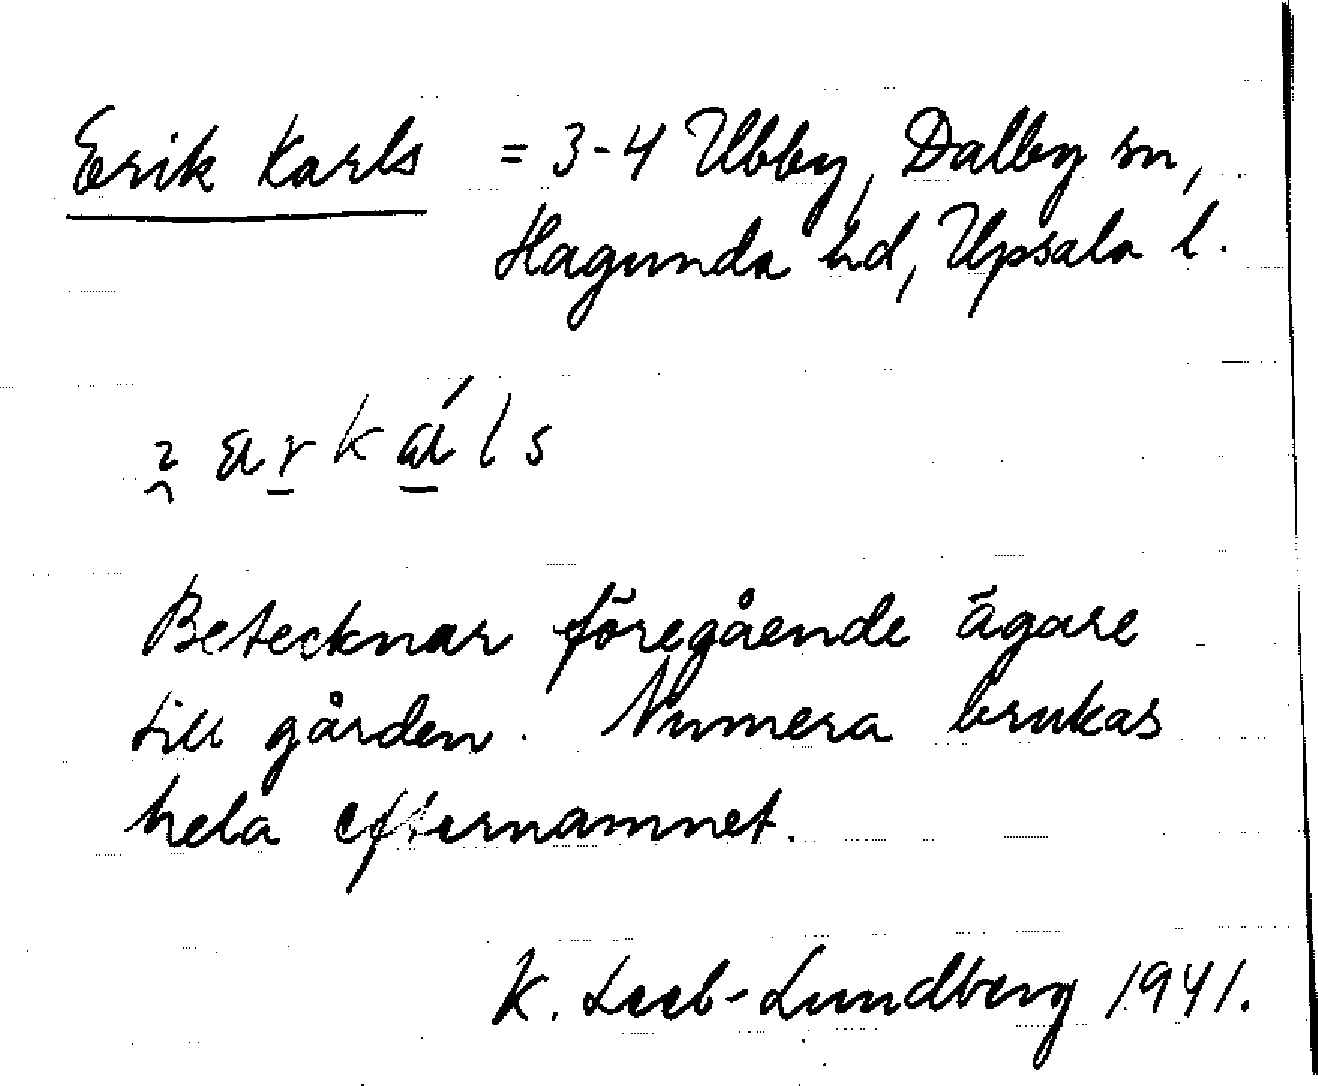 Erik Karls = 3-4 Ubby, Dalby sn,
Hagunda hd, Upsala l.
Betecknar föregående ägare
till gården. Numera brukas
hela efternamnet.
K. Leeb-Lundberg 1941.